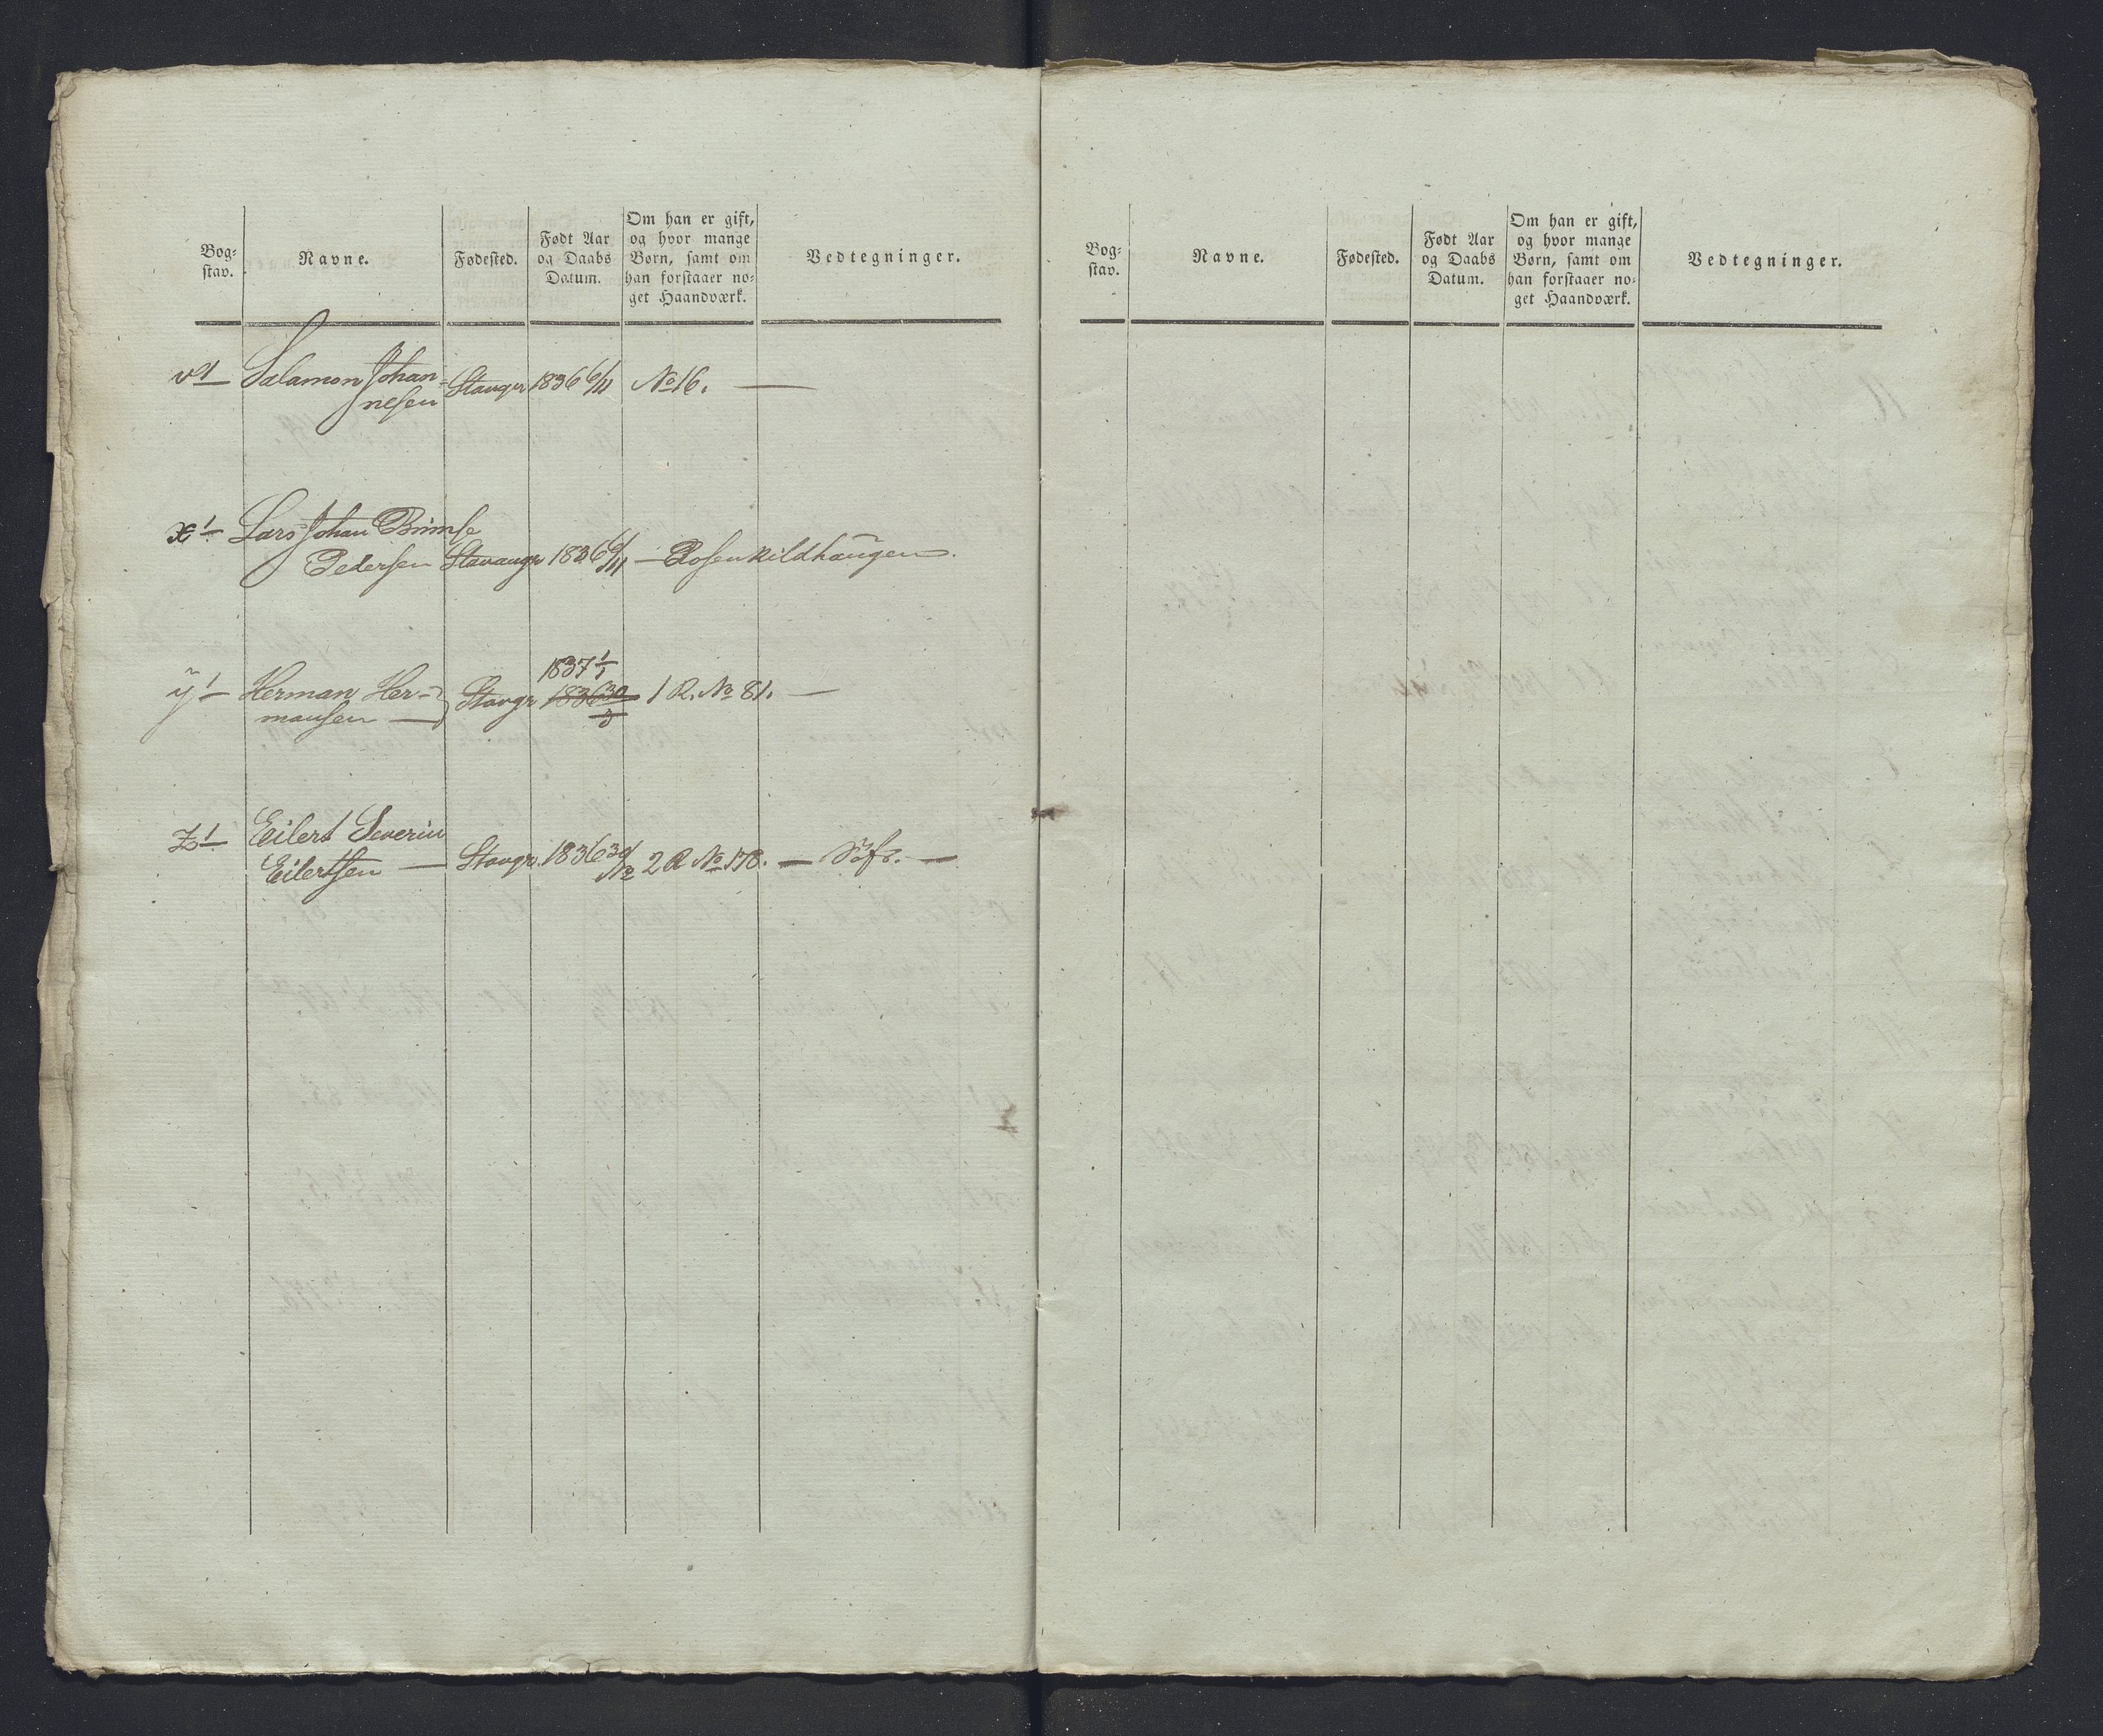 Bog-
stav.
Navne.
Fødested.
Født Aar
og Daabs
Datum.
Om han er gift,
og hvor mange
Børn, samt om
han forstaaer no-
get Haandværk.
Vedtegninger.
v1 Salamon Johan-
nesen Stavgr 1836 6/11 No 16. —
x1 Lars Johan
Pedersen Stavangr 1836 6/11 — Rosenkildhaugen.
1837 1/1
ÿ1 Herman Her- Stavgr 1836 30 1 R. No 81. —
mansen —
z1 Eilert Severin
Eilertsen — Stavgr. 1836 30/12 2 R No 178. — Söfr. —
Bog-
stav.
Navne.
Fødested.
Født Aar
og Daabs
Datum.
Om han er gift,
og hvor mange
Børn, samt om
han forstaaer no-
get Haandværk.
Vedtegninger.